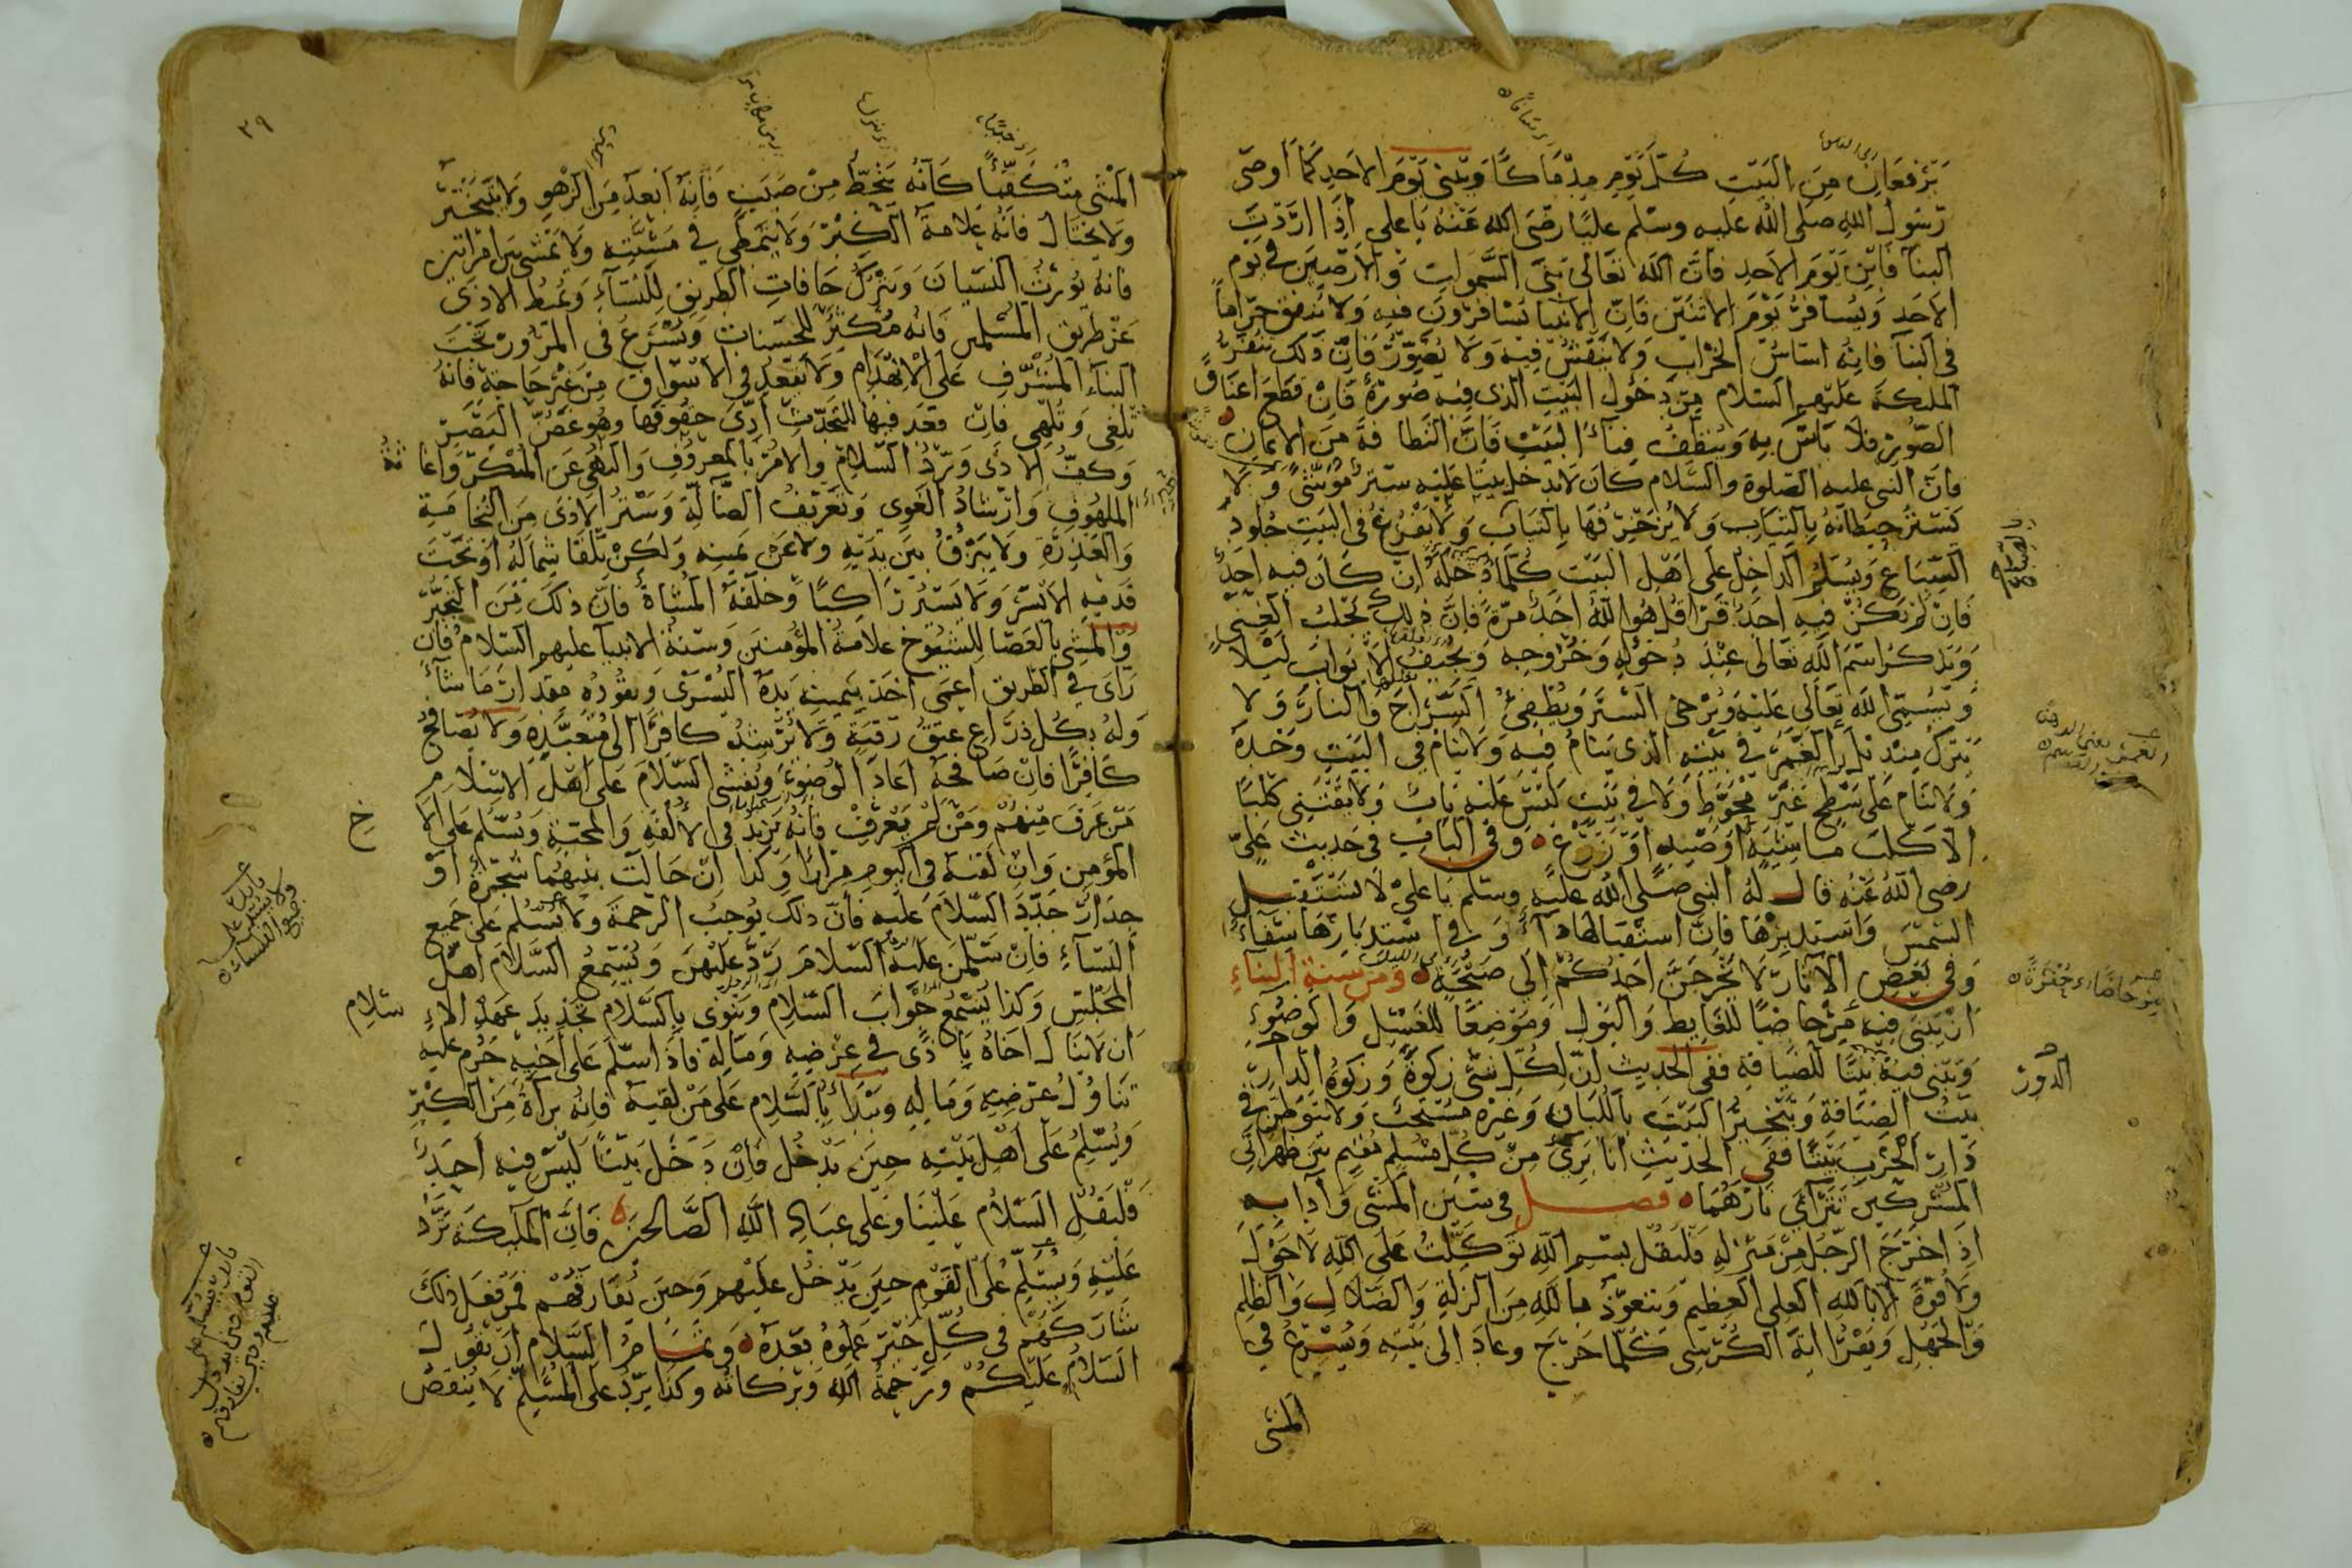 يرفعان من البيت كل يوم مدماكا ويبنى يوم الاحد كما اوصى
رسول الله صلى الله عليه وسلم عليا رضى الله عنه يا على اذا اردت
البنآ فابن يوم الاحد فان الله تعالى بنى السموات والارضين فى يوم
الاحد ويسافر يوم الاثنين فان الانبيا يسافرون فيه ولا ينفق حراما
فى البنآ فانه اساس الخراب ولا ينقش فيه ولا يصور فان ذلك ينفر
الملئكة عليهم السلام من دخول البيت الذى فيه صورة فان قطع اعناق
الصور فلا باس به وينظف فنآء البيت فان النظافة من الايمان
فان النبى عليه الصلوة والسلام كان لا يدخل بيتا عليه ستر موشى ولا
تستر حيطانه بالثياب ولا يزخرفها بالثياب ولا يفرش فى البيت جلود
السباع ويسلم الداخل على اهل البيت كلما دخله ان كان فيه احد
فان لم يكن فيه احد قرا قل هو الله احد مرة فان ذلك يجلب الغنى
ويذكر اسم الله تعالى عند دخوله وخروجه ويجيف الابواب ليلا
ويسمى الله تعالى عليه ويرخى الستر ويطفئ السراج والنار ولا
يترك منديل الغمر فى بيته الذى ينام فيه ولا ينام فى البيت وحده
ولا ينام على سطح غير محوط ولا فى بيت ليس عليه باب ولا يقتنى كلبا
الا كلب ماشية او صيد او زرع وفى الباب فى حديث على
رضى الله عنه قال له النبى صلى الله عليه وسلم يا على لا تستقبل
الشمس واستدبرها فان استقبالها دآء وفى استدبارها شفآء
وفى بعض الاثار لا يخرجن احدكم الى صيحة ومن سنة البناء
ان يبنى فيه مرحاضا للغايط والبول وموضعا للغسل والوضوء
ويبنى فيه بيتا للضيافة ففى الحديث ان لكل شئ زكوة وزكوة الدار
بيت الضيافة وتبخير البيت باللبان وغيره مستحب ولا يتوطن فى
دار الحرب بيتا ففى الحديث انا برئ من كل مسلم مقيم بين ظهرانى
المشركين تترآءى نارهما فصل فى سنن المشى وآدابه
اذا خرج الرجل من منزله فليقل بسم الله توكلت على الله لا حول
ولا قوة الا بالله العلى العظيم ويتعوذ بالله من الزلة والضلال والظلم
والجهل ويقرا اية الكرسى كلما خرج وعاد الى بيته ويسرع فى
المشى
الدور
٢٩
المشى متكفئا كانه ينحط من صبب فانه ابعد من الزهو ولا يتبختر
ولا يختال فانه علامة الكبر ولا يتمطى فى مشيته ولا يمشى بين امراتين
فانه يورث النسيان ويترك حافات الطريق للنسآء ويميط الاذى
عن طريق المسلمين فانه مكثر للحسنات ويسرع فى المرور تحت
البنآء المشرف على الانهدام ولا يقعد فى الاسواق من غير حاجة فانه
تلغى وتلهى فان قعد فيها للتحدث ادى حقوقها وهو غض البصر
وكف الاذى ورد السلام والامر بالمعروف والنهى عن المنكر واغاثة
الملهوف وارشاد الغوى وتعريف الضآلة وستر الاذى من النخامة
والعذرة ولا يبزق بين يديه ولا عن يمينه ولكن تلقا شماله او تحت
قدميه الايسر ولا يسير راكبا وخلفه المشاة فان ذلك من التجبر
والمشى بالعصا للشيوخ علامة المؤمنين وسنة الانبيآ عليهم السلام فان
راى فى الطريق اعمى اخذ بيمينه يده اليسرى ويقوده مقدار ما شآء
وله بكل ذراع عتق رقبة ولا يرشد كافرا الى متعبده ولا يصافح
كافرا فان صافحه اعاد الوضوء ويفشى السلام على اهل الاسلام
من عرف منهم ومن لم يعرف فانه يزيد فى الالفة والمحبة ويسلم على اخ
المؤمن وان لقيه فى اليوم مرارا وكذا ان حالت بينهما شجرة او
جدار جدد السلام عليه فان ذلك يوجب الرحمة ولا يسلم على جميع
النسآء فان سلمن عليه السلام رد عليهن ويستمع السلام اهل
المجلس وكذا يسمع جواب السلام وينوى بالسلام تجديد عهد الاسلام
ان لا ينال اخاه باذى فى عرضه وماله فاذا سلم على اخيه حرم عليه
تناول عرضه وماله ويبدأ بالسلام على من لقيه فانه برآة من الكبر
ويسلم على اهل بيته حين يدخل فان دخل بيتا ليس فيه احد
فليقل السلام علينا وعلى عباد الله الصالحين فان الملئكة ترد
عليه ويسلم على القوم حين يدخل عليهم وحين يفارقهم فمن فعل ذلك
شاركهم فى كل خير عملوه بعده وتمام السلام ان يقول
السلام عليكم ورحمة الله وبركاته وكذا يرد على المسلم لا ينقص